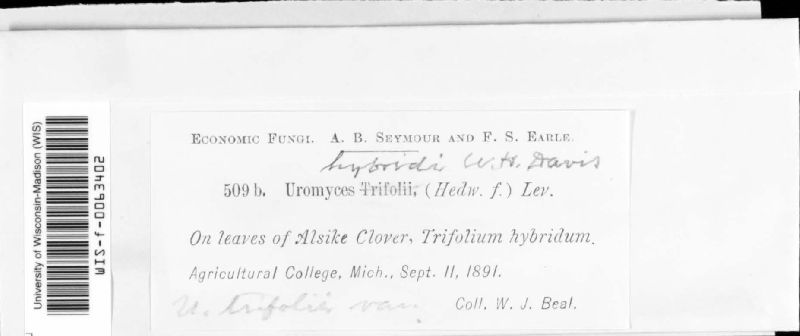 University of Wisconsin-Madison (WIS)
WIS-f-0063402
ECONOMIC FUNGI. A. B. SEYMOUR AND F. S. EARLE.
hybridi W. H. Davis
509 b. Uromyces Trifolii, (Hedw. f.) Lev.
On leaves of Alsike Clover, Trifolium hybridum.
Agricultural College, Mich., Sept. 11, 1891.
U. trifolii var.
Coll. W. J. Beal.